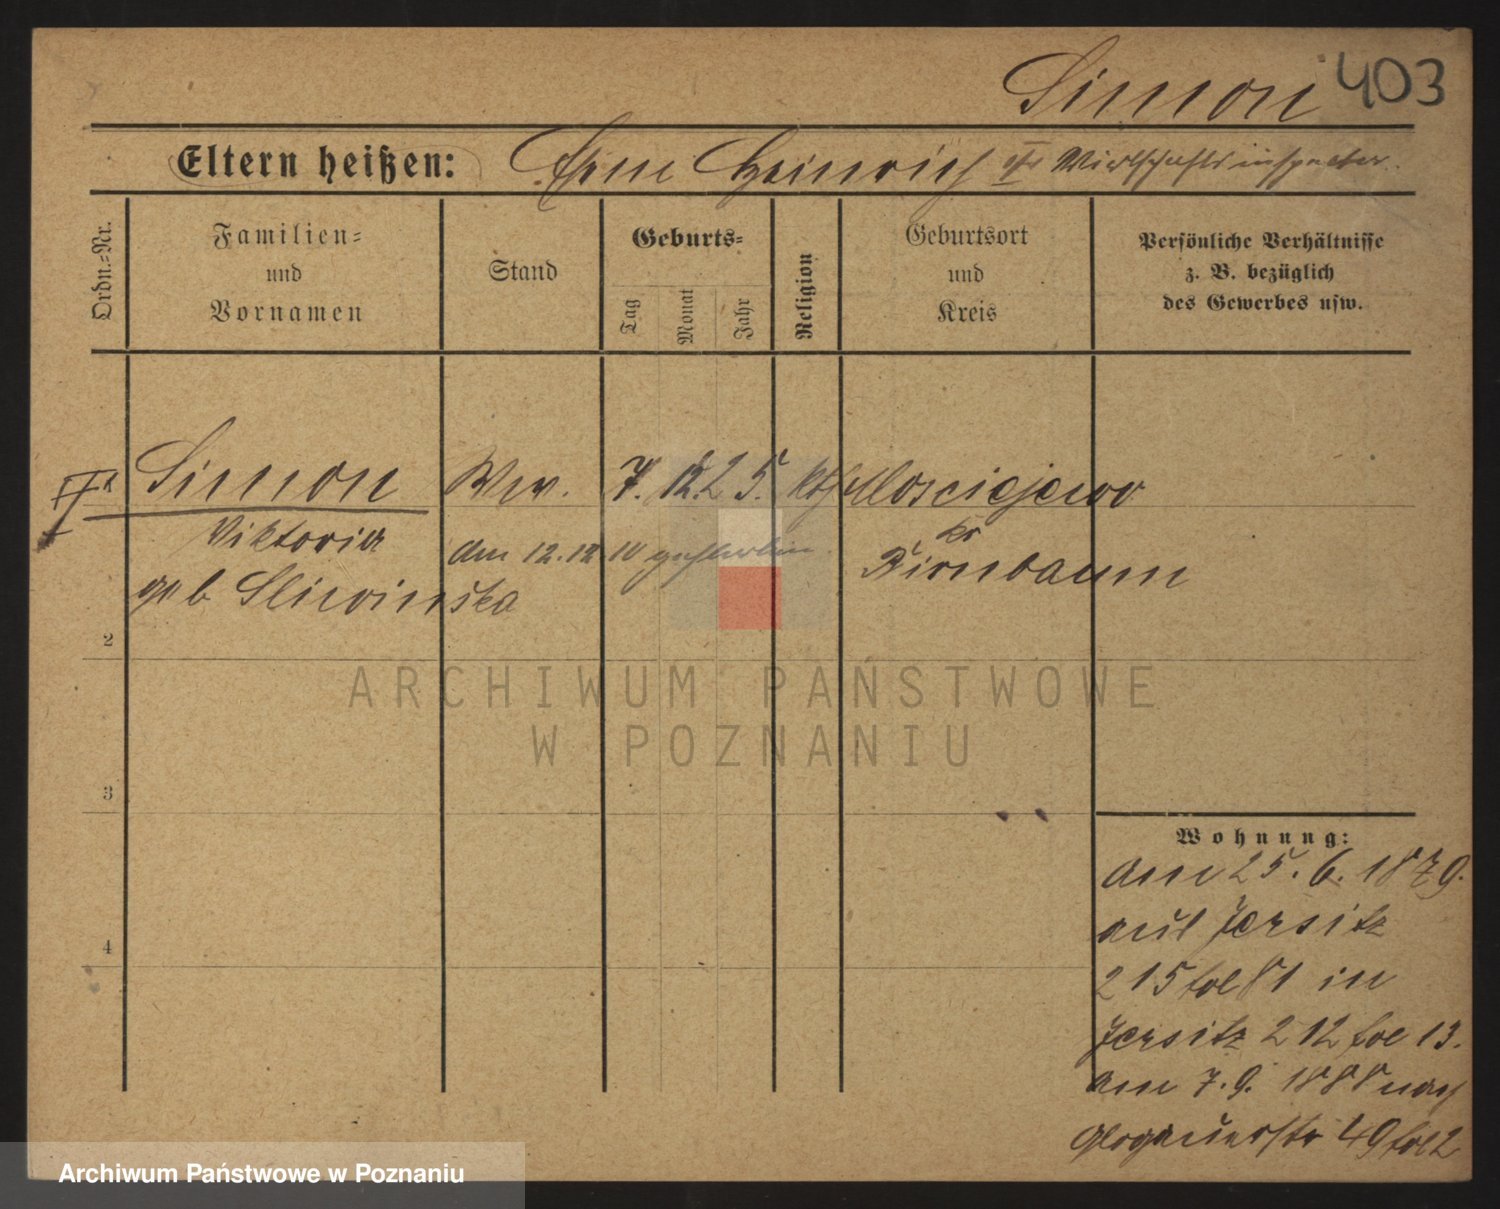 Simon 403
Eltern heißen: Heinrich Wirtschaftsinspector.
Ordn.=Nr.
Familien=
und
Vornamen
Stand
Geburts=
Tag
Monat
Jahr
Religion
Geburtsort
und
Kreis
Persönliche Verhältnisse
z. B. bezüglich
des Gewerbes usw.
Simon Wwe. 7. 12. 25. kth Mosciejewo
Viktoria
geb Sliwinska
am 12.12.10 gestorben.
kr
Birnbaum
2
3
4
Wohnung:
am 25. 6. 1879.
aus Jersitz
215 fol 81 in
Jersitz 212 fol 13.
am 7. 9. 1888 nach
Glogauerstr 49 fol 2
ARCHIWUM PAŃSTWOWE
W POZNANIU
Archiwum Państwowe w Poznaniu